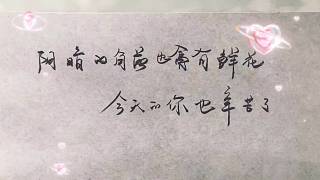 阴暗的角落也會有鲜花
今天的你也辛苦了